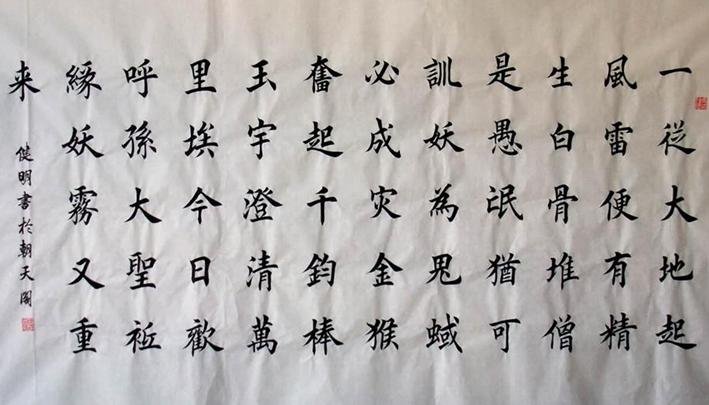 一從大地起
風雷便有精
生白骨堆僧
是愚氓猶可
訓妖為鬼蜮
必成灾金猴
奮起千鈞棒
玉宇澄清萬
里埃今日歡
呼孫大聖衹
緣妖霧又重
来
健明書於朝天閣